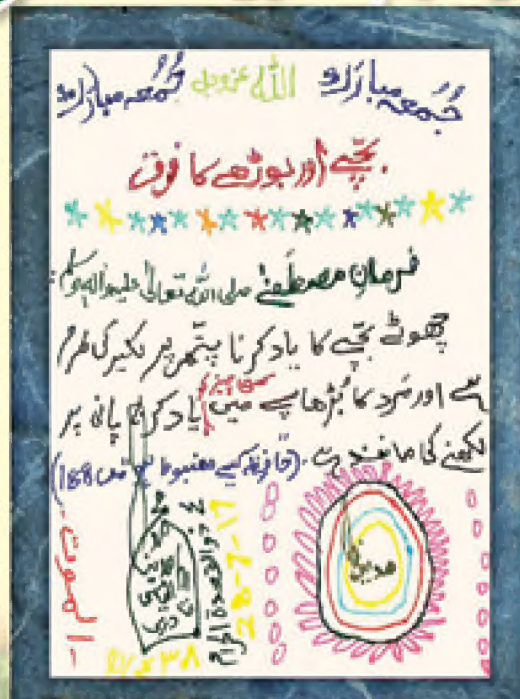 جُمُعہ مبارک اللہ عزوجل جُمُعہ مبارک
بچّے اور بوڑھے کا فرق
فرمانِ مصطفٰے صلی اللہ تعالیٰ علیہ والہ وسلم:
چھوٹے بچّے کا یاد کرنا پتّھر پر لکیر کی طرح
ہے اور مرد کا بُڑھاپے میں یاد کرنا پانی پر
لکھنے کی مانند ہے۔ (حافظہ کیسے مضبوط ہو ص 168)
مدینہ